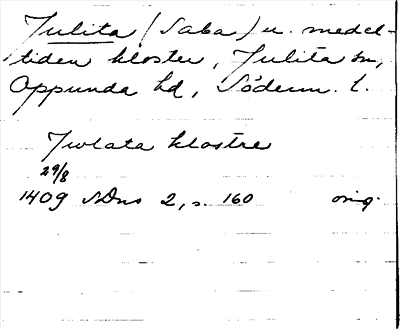 Julita (Saba) u. medel-
tiden kloster, Julita sn,
Oppunda hd, Söderm. l.
Jwlata klostre
29/8
1409 SDns 2, s. 160 orig.